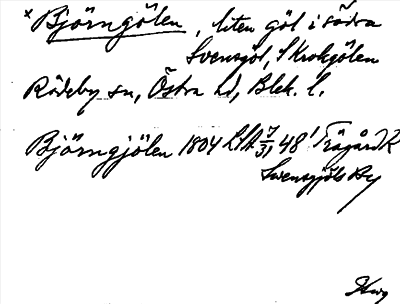 × Björngölen, liten göl i södra
Svensjöl, S Krokgölen
Rödeby sn, Östra hd, Blek. l.
Björngjölen 1804 LSA 7/31 48' Trägård R
Svensgjöls By